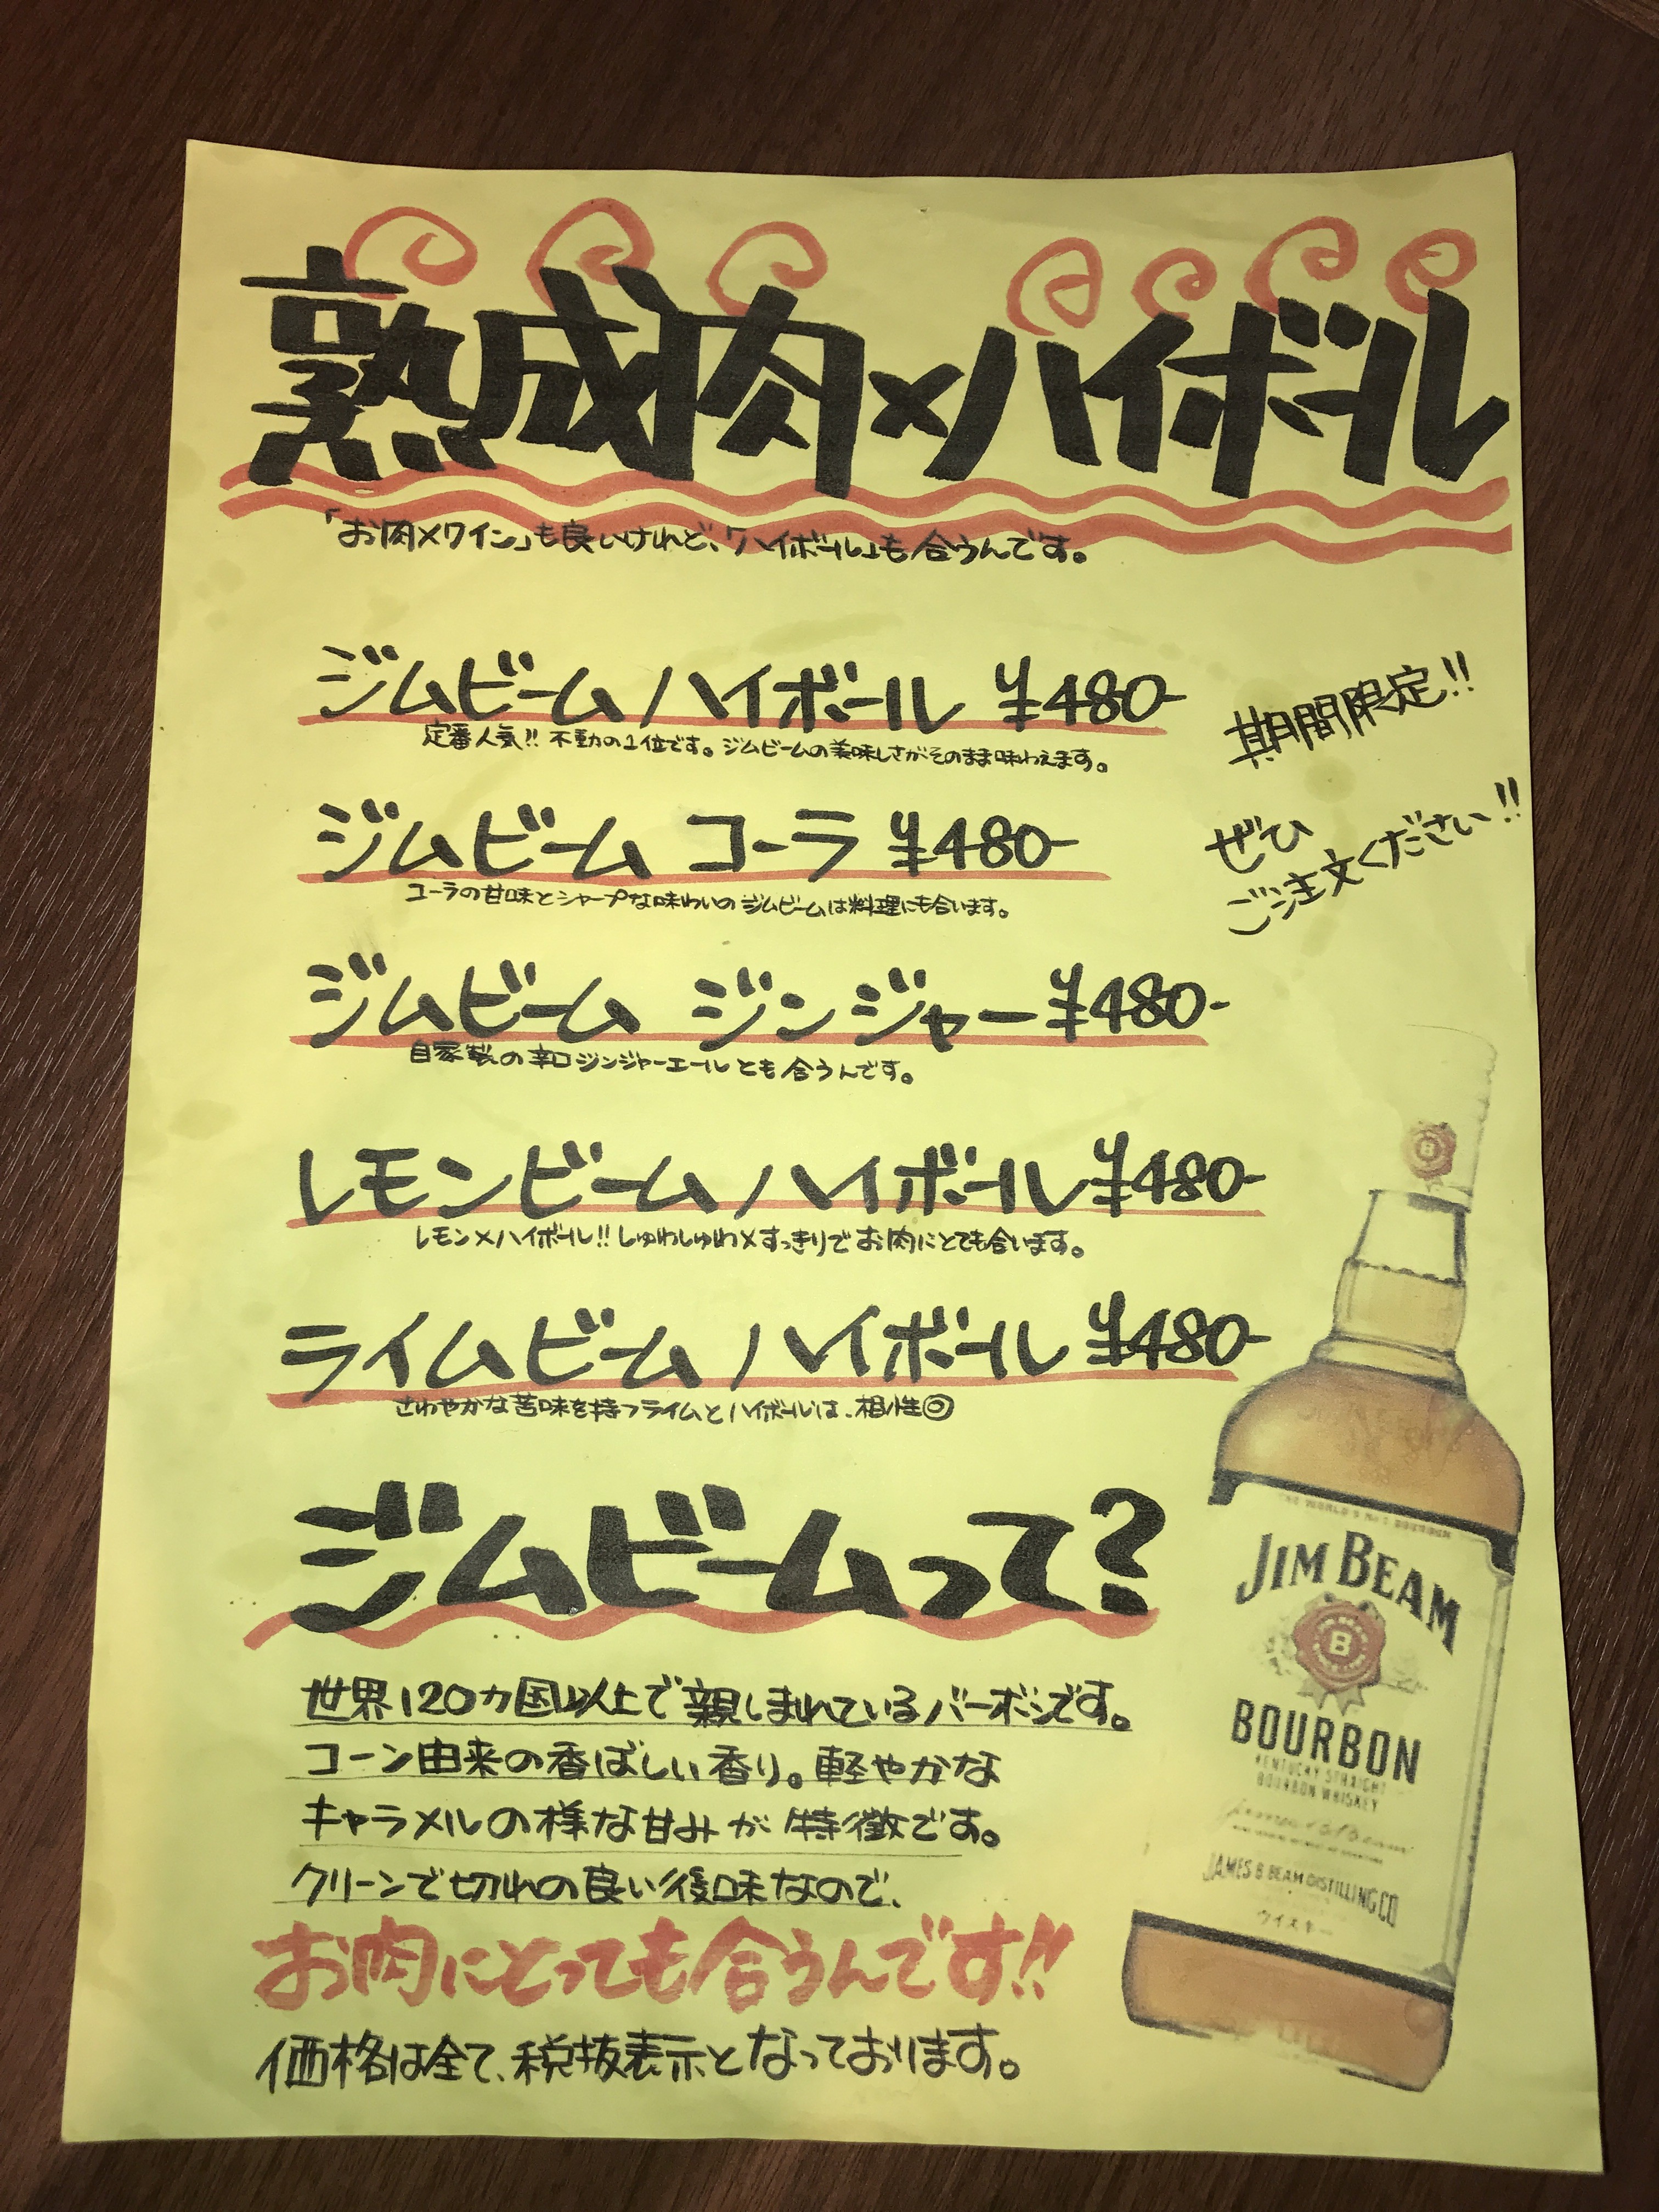 熟成肉×ハイボール
「お肉×ワイン」も良いけれど、「ハイボール」も合うんです。
ジムビームハイボール ¥480-
定番人気!! 不動の1位です。ジムビームの美味しさがそのまま味わえます。
期間限定!!
ぜひ
ご注文ください!!
ジムビーム コーラ ¥480-
コーラの甘味とシャープな味わいのジムビームは料理にも合います。
ジムビーム ジンジャー ¥480-
自家製の辛口ジンジャーエールとも合うんです。
レモンビームハイボール ¥480-
レモン×ハイボール!! しゅわしゅわ×すっきりでお肉にとても合います。
ライムビームハイボール ¥480-
さわやかな苦味を持つライムとハイボールは、相性◎
ジムビームって?
世界120カ国以上で親しまれているバーボンです。
コーン由来の香ばしい香り。軽やかな
キャラメルの様な甘みが特徴です。
クリーンで切れの良い後味なので、
お肉にとっても合うんです!!
価格は全て、税抜表示となっております。
B
THE WORLD'S No.1 BOURBON
JIM BEAM
B
BOURBON
KENTUCKY STRAIGHT
BOURBON WHISKEY
JAMES B BEAM DISTILLING CO
ウイスキー